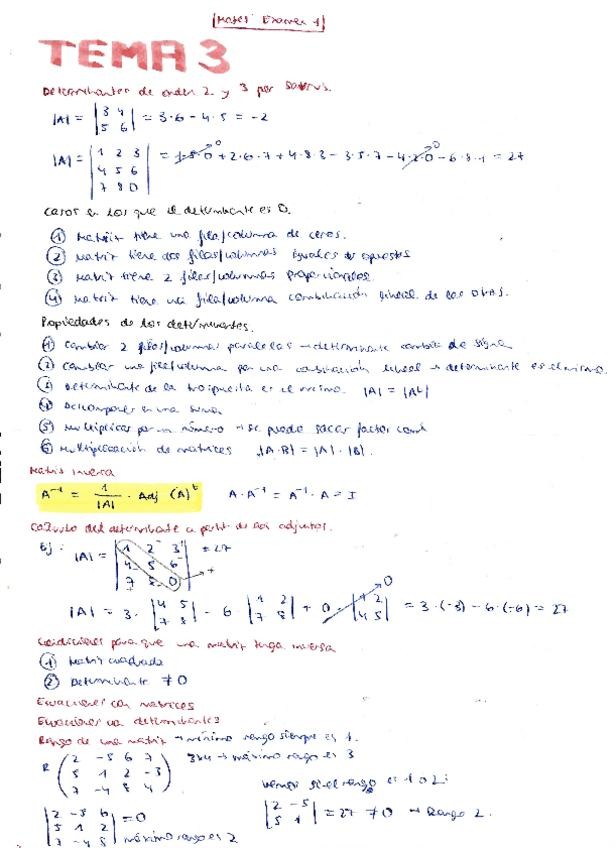 Mates Examen 1
TEMA 3
Determinantes de orden 2 y 3 por Sarrus.
|A| = |3 4; 5 6| = 3·6 - 4·5 = -2
|A| = |1 2 3; 4 5 6; 7 8 0| = 1·5·0 + 2·6·7 + 4·8·3 - 3·5·7 - 4·2·0 - 6·8·1 = 27
Casos en los que el determinante es 0.
① Matriz tiene una fila/columna de ceros.
② Matriz tiene dos filas/columnas iguales u opuestas
③ Matriz tiene 2 filas/columnas proporcionales
④ Matriz tiene una fila/columna combinación lineal de las otras.
Propiedades de los determinantes.
① Cambiar 2 filas/columnas paralelas → determinante cambia de signo
② Cambiar una fila/columna por una combinación lineal → determinante es el mismo.
③ Determinante de la traspuesta es el mismo. |A| = |Aᵗ|
④ Descomponer en una suma
⑤ Multiplicar por un número → se puede sacar factor común
⑥ Multiplicación de matrices |A·B| = |A|·|B|.
Matriz inversa
A⁻¹ = 1/|A| · Adj (A)ᵗ A·A⁻¹ = A⁻¹·A = I
Cálculo del determinante a partir de los adjuntos.
Ej: |A| = |1 2 3; 4 5 6; 7 8 0| = 27
|A| = 3·|4 5; 7 8| - 6 |1 2; 7 8| + 0 |1 2; 4 5| = 3·(-3) - 6·(-6) = 27
Condiciones para que una matriz tenga inversa
① Matriz cuadrada
② Determinante ≠ 0
Ecuaciones con matrices
Ecuaciones con determinantes
Rango de una matriz → mínimo rango siempre es 1.
R (2 -5 6 7; 5 1 2 -3; 7 -4 8 4) 3x4 → máximo rango es 3
vemos si el rango es 1 o 2:
|2 -5 6; 5 1 2; 7 -4 8| = 0 máximo rango es 2
|2 -5; 5 1| = 27 ≠ 0 → Rango 2.